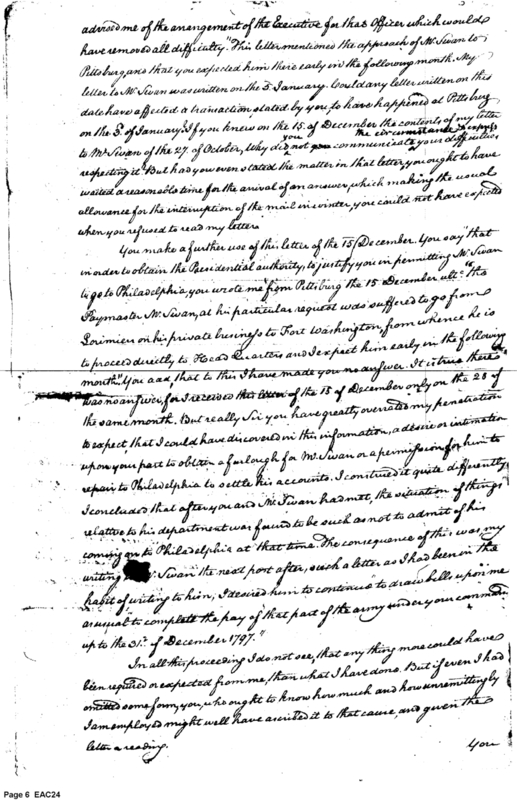 advised me of the arrangement of the Executive for that Officer which would
have removed all difficulty." This letter mentioned the approach of Mr. Swan to
Pittsburg and that you expected him there early in the following month. My
letter to Mr. Swan was written on the 5 January. Could any letter written on this
date have affected a transaction stated by you, to have happened at Pittsburg
on the 3d. of January? If you knew on the 15. of December the contents of my letter
to Mr. Swan of the 27. of October, Why did you not communicate the circumstance & your difficulties
respecting it? But had you even stated the matter in that letter, you ought to have
waited a reasonable time for the arrival of an answer, which making the usual
allowance for the interruption of the mail in winter, you could not have expected
when you refused to read my letter.
You make a further use of this letter of the 15 December. You say "that
in order to obtain the Presidential authority, to justify you in permitting Mr. Swan
to go to Philadelphia, you wrote me from Pittsburg the 15 December ulto. "the
Paymaster Mr. Swan, at his particular request was suffered to go from
Lorimiers on his private business to Fort Washington, from whence he is
to proceed directly to Head Quarters and I expect him early in the following
month." You add, that to this I have made you no answer. It is true there
was no answer, for I received this letter of the 15 of December only on the 28 of
the same month. But really Sir you have greatly overrated my penetration
to expect that I could have discovered in this information, a desire or intimation
upon your part to obtain a furlough for Mr. Swan or a permission for him to
repair to Philadelphia to settle his accounts. I construed it quite differently.
I concluded that after you and Mr. Swan had met, the situation of things
relative to his department was found to be such as not to admit of his
coming on to Philadelphia at that time. The consequence of this was, my
writing Mr. Swan the next post after, such a letter as I had been in the
habit of writing to him; I desired him to continue "to draw bills upon me
as usual to complete the pay of that part of the army under your command
up to the 31st. of December 1797."
In all this proceeding I do not see, that any thing more could have
been required or expected from me, than what I have done. But if even I had
omitted some form, you, who ought to know how much and how unremittingly
I am employed might well have ascribed it to that cause, and given the
letter a reading.
You
Page 6 EAC24